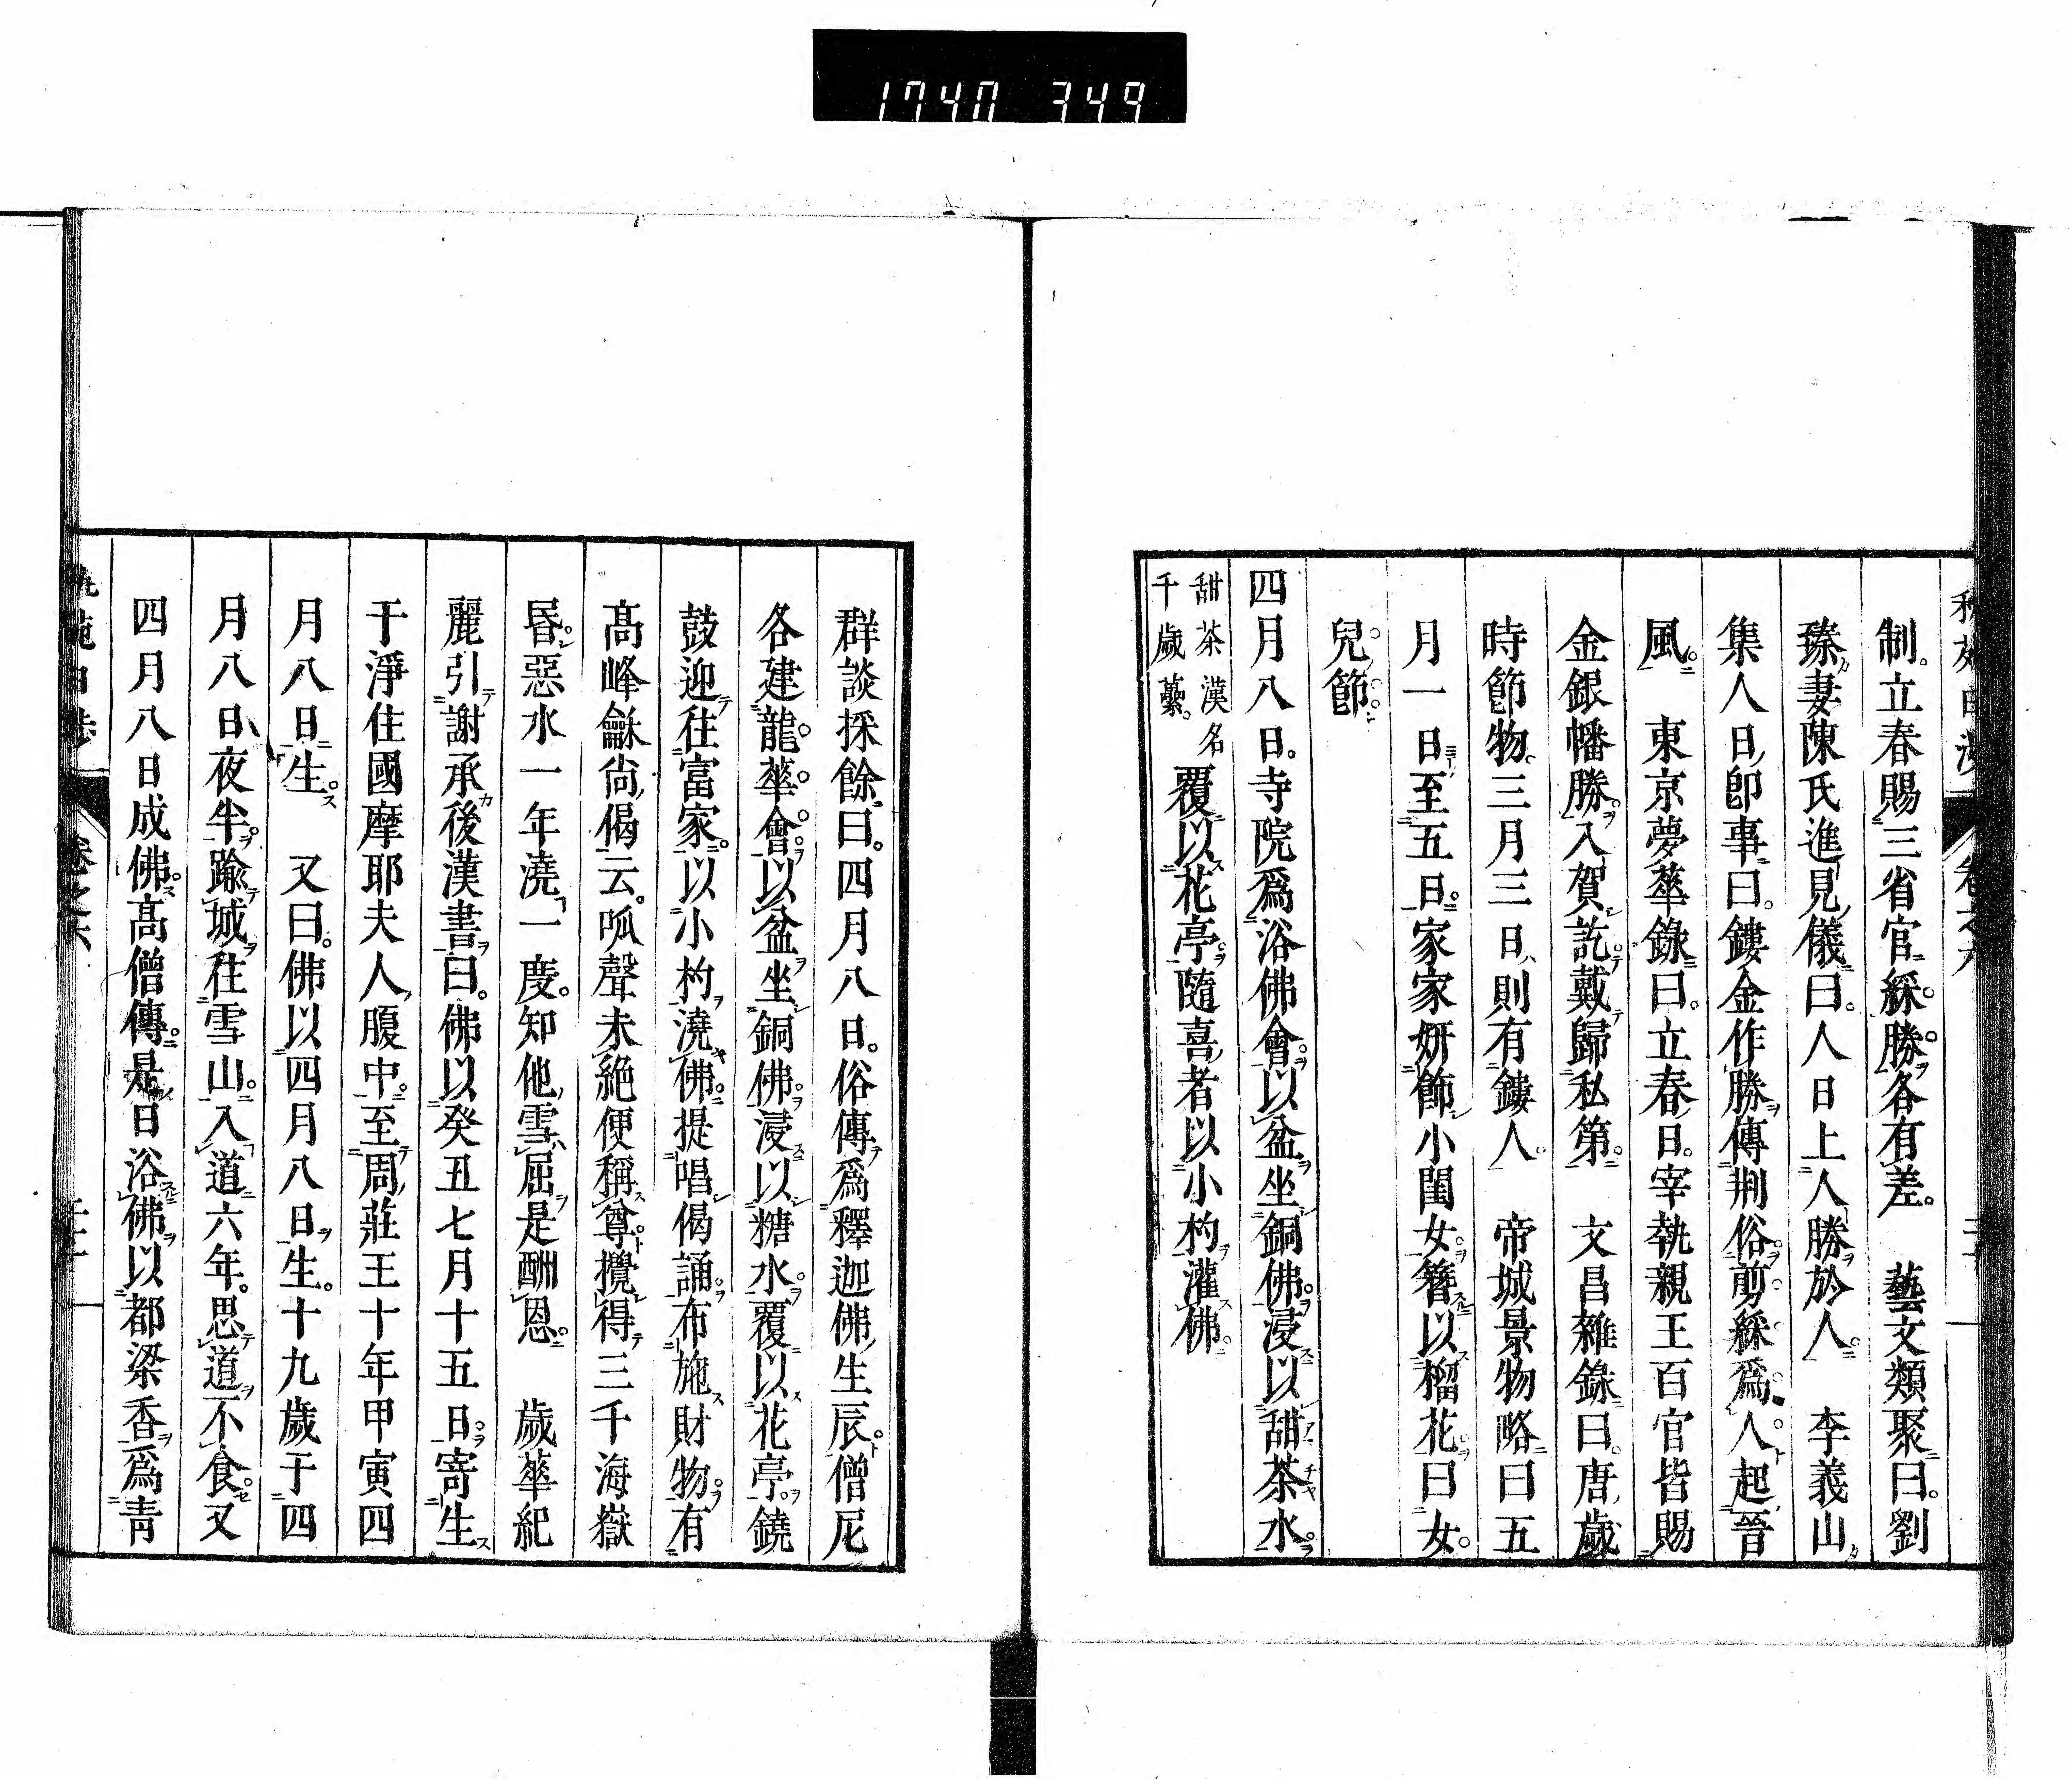 1740 349
制立春賜三省官綵勝各有差。 藝文類聚曰劉
臻妻陳氏進見儀曰人日上人勝於人 李義山
集人日卽事曰鏤金作勝傳荆俗剪綵爲人起晉
風 東京夢華錄曰立春日宰執親王百官皆賜
金銀幡勝入賀訖戴歸私第 文昌雜錄曰唐歲
時節物三月三日則有鏤人 帝城景物略曰五
月一日至五日家家妍飾小閨女簪以榴花曰女
兒節
四月八日寺院爲浴佛會以盆坐銅佛浸以甜茶水
甜茶漢名
千歲蘽
覆以花亭隨喜者以小杓灌佛
群談採餘曰四月八日俗傳爲釋迦佛生辰僧尼
各建龍華會以盆坐銅佛浸以糖水覆以花亭鐃
鼓迎往富家以小杓澆佛提唱偈誦布施財物有
高峰龢尚偈云呱聲未絕便稱尊攪得三千海嶽
昏惡水一年澆一度知他雪屈是酬恩 歲華紀
麗引謝承後漢書曰佛以癸丑七月十五日寄生
于淨住國摩耶夫人腹中至周莊王十年甲寅四
月八日生 又曰佛以四月八日生十九歲于四
月八日夜半踰城往雪山入道六年思道不食又
四月八日成佛高僧傳是日浴佛以都梁香爲青
卷之六